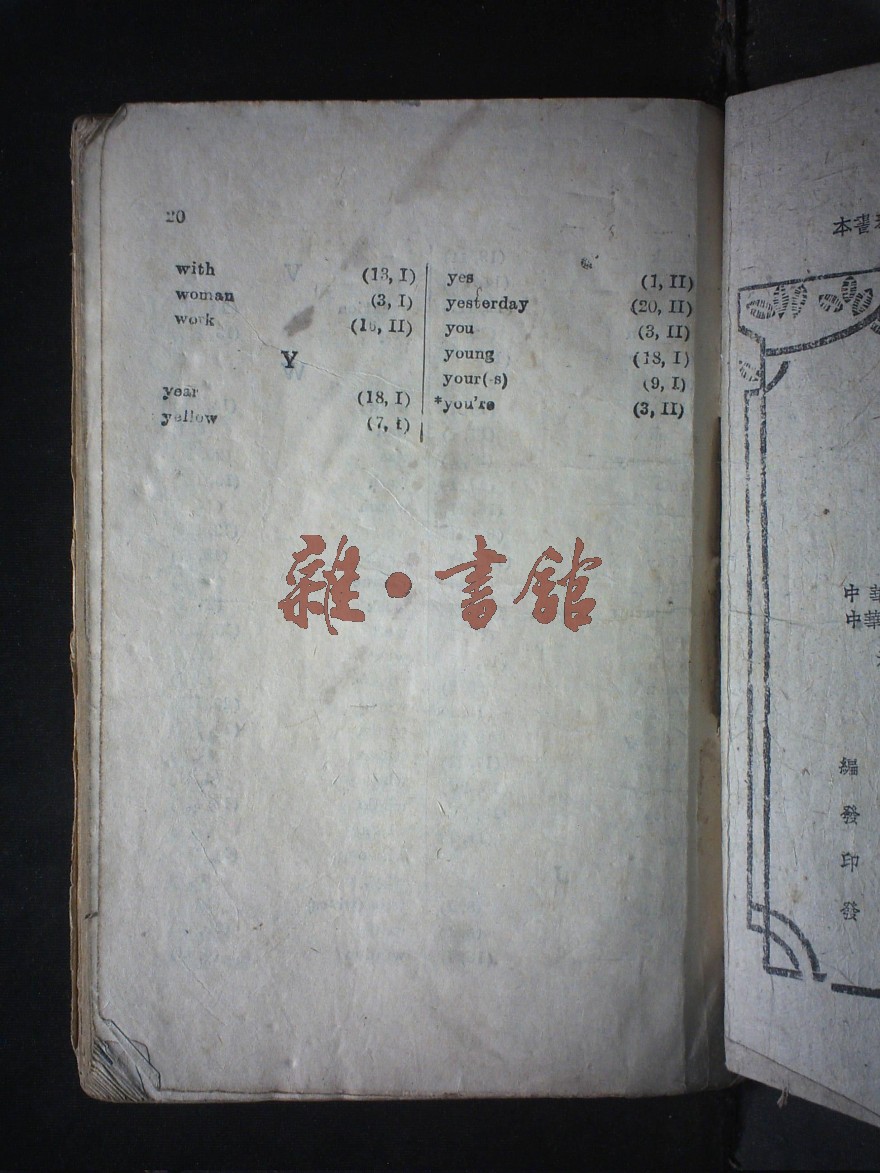 20
with (13, I)
woman (3, I)
work (16, II)
Y
year (18, I)
yellow (7, I)
yes (1, II)
yesterday (20, II)
you (3, II)
young (18, I)
your(-s) (9, I)
*you're (3, II)
雜·書館
本書
中華
中華
編
發
印
發